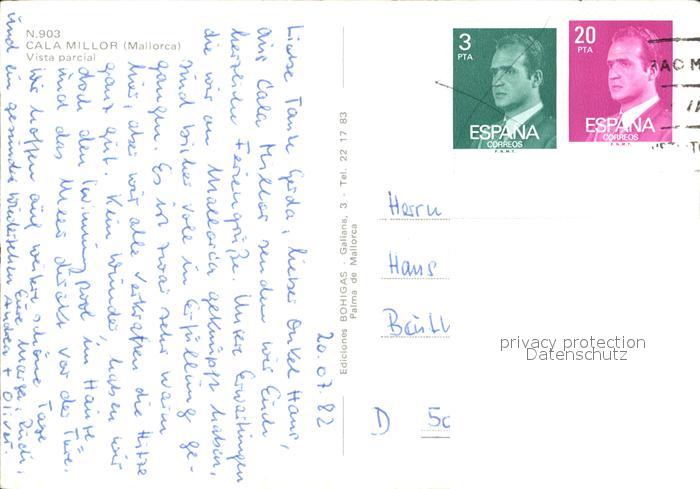 N.903
CALA MILLOR (Mallorca)
Vista parcial
20.07.82
Liebe Tante Gerda, lieber Onkel Hans,
aus Cala Millor senden wir Euch
herzliche Feriengrüße. Unsere Erwartungen
die wir an Mallorca geknüpft haben,
sind bisher voll in Erfüllung ge-
gangen. Es ist zwar sehr warm
hier, aber wir alle verkraften die Hitze
ganz gut. Kein Wunder, haben wir
doch den Swimming pool im Hause
und das Meer direkt vor der Türe.
Wir hoffen auf weitere schöne Tage
und ein gesundes Wiedersehen
Eure Marga, Rudi,
Andrea + Oliver.
Ediciones BOHIGAS - Galiana, 3 - Tel. 22 17 83
Palma de Mallorca
3
PTA
ESPAÑA
CORREOS
F.N.M.T.
20
PTA
ESPAÑA
CORREOS
F.N.M.T.
Herrn
Hans
D 50
privacy protection
Datenschutz